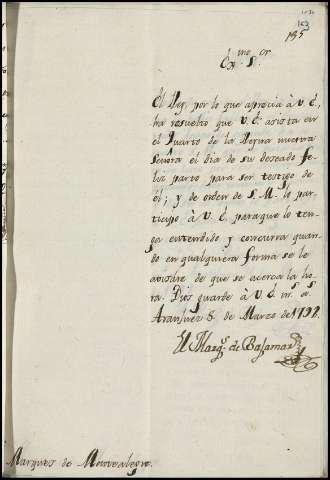 135
Ex.mo S.or
El Rey, por lo que aprecia à V.E.,
ha resuelto que V.E. asista en
el Quarto de la Reyna nuestra
Señora el dia de su deseado fe-
liz parto para ser testigo de
él; y de orden de S.M. lo par-
ticipo à V.E. paraque lo ten-
ga entendido y concurra quan-
do en qualquiera forma se le
avisáre de que se acerca la ho-
ra. Dios guarde à V.E. m.s a.s
Aranjuez 8 de Marzo de 1792.
El Marq.s de Bajamar
Marques de